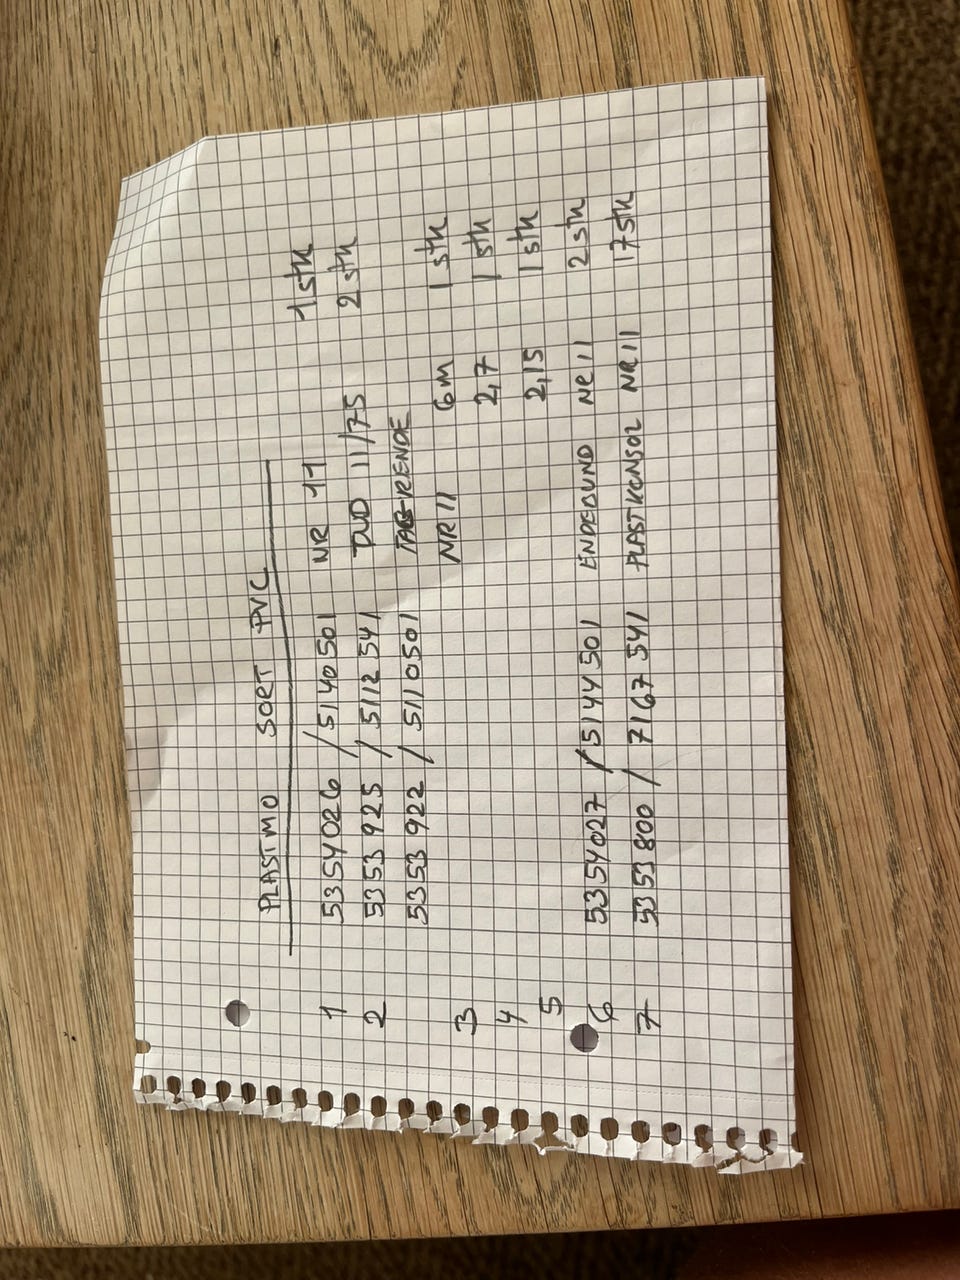 PLASTMO SORT PVC
1 5354026 / 5140501 NR 11 1 stk
2 5353925 / 5112541 TUD 11/75 2 stk
5353922 / 5110501 TAGRENDE
3 NR 11 6 m 1 stk
4 2,7 1 stk
5 2,15 1 stk
6 5354027 / 5144501 ENDEBUND NR 11 2 stk
7 5353800 / 7167541 PLASTKONSOL NR 11 17 stk